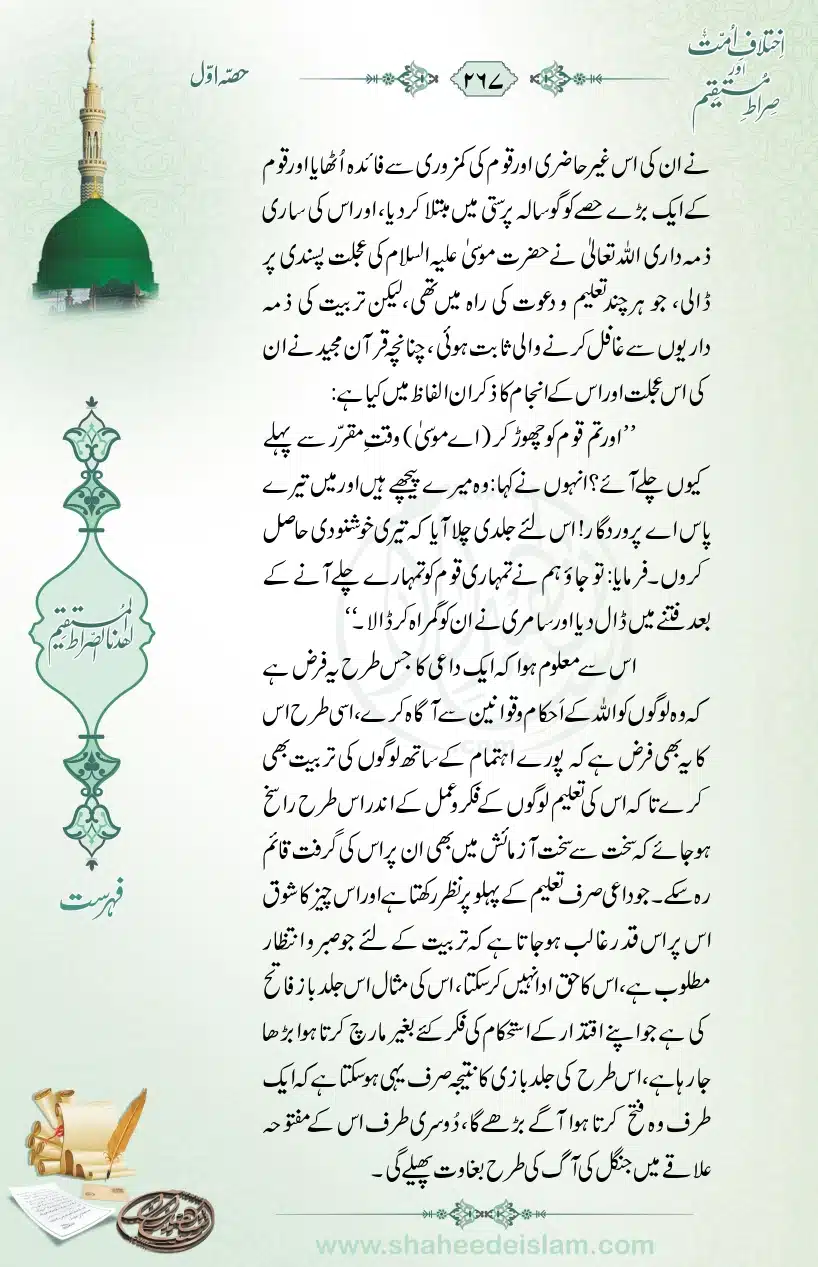 اِختلافِ اُمّت
اور
صِراطِ مُستقیم
۲۶۷
حصّہ اوّل
نے ان کی اس غیر حاضری اور قوم کی کمزوری سے فائدہ اُٹھایا اور قوم
کے ایک بڑے حصے کو گوسالہ پرستی میں مبتلا کردیا، اور اس کی ساری
ذمہ داری اللہ تعالیٰ نے حضرت موسیٰ علیہ السلام کی عجلت پسندی پر
ڈالی، جو ہر چند تعلیم و دعوت کی راہ میں تھی، لیکن تربیت کی ذمہ
داریوں سے غافل کرنے والی ثابت ہوئی، چنانچہ قرآن مجید نے ان
کی اس عجلت اور اس کے انجام کا ذکر ان الفاظ میں کیا ہے:
’’اور تم قوم کو چھوڑ کر (اے موسیٰ) وقتِ مقرّر سے پہلے
کیوں چلے آئے؟ انہوں نے کہا: وہ میرے پیچھے ہیں اور میں تیرے
پاس اے پروردگار! اس لئے جلدی چلا آیا کہ تیری خوشنودی حاصل
کروں۔ فرمایا: تو جاؤ ہم نے تمہاری قوم کو تمہارے چلے آنے کے
بعد فتنے میں ڈال دیا اور سامری نے ان کو گمراہ کر ڈالا۔‘‘
اس سے معلوم ہوا کہ ایک داعی کا جس طرح یہ فرض ہے
کہ وہ لوگوں کو اللہ کے اَحکام و قوانین سے آگاہ کرے، اسی طرح اس
کا یہ بھی فرض ہے کہ پورے اہتمام کے ساتھ لوگوں کی تربیت بھی
کرے تاکہ اس کی تعلیم لوگوں کے فکر و عمل کے اندر اس طرح راسخ
ہوجائے کہ سخت سے سخت آزمائش میں بھی ان پر اس کی گرفت قائم
رہ سکے۔ جو داعی صرف تعلیم کے پہلو پر نظر رکھتا ہے اور اس چیز کا شوق
اس پر اس قدر غالب ہوجاتا ہے کہ تربیت کے لئے جو صبر و انتظار
مطلوب ہے، اس کا حق ادا نہیں کرسکتا، اس کی مثال اس جلد باز فاتح
کی ہے جو اپنے اقتدار کے استحکام کی فکر کئے بغیر مارچ کرتا ہوا بڑھا
جارہا ہے، اس طرح کی جلد بازی کا نتیجہ صرف یہی ہوسکتا ہے کہ ایک
طرف وہ فتح کرتا ہوا آگے بڑھے گا، دُوسری طرف اس کے مفتوحہ
علاقے میں جنگل کی آگ کی طرح بغاوت پھیلے گی۔
اھدنا الصّراط المُستقیم
فہرست
www.shaheedeislam.com